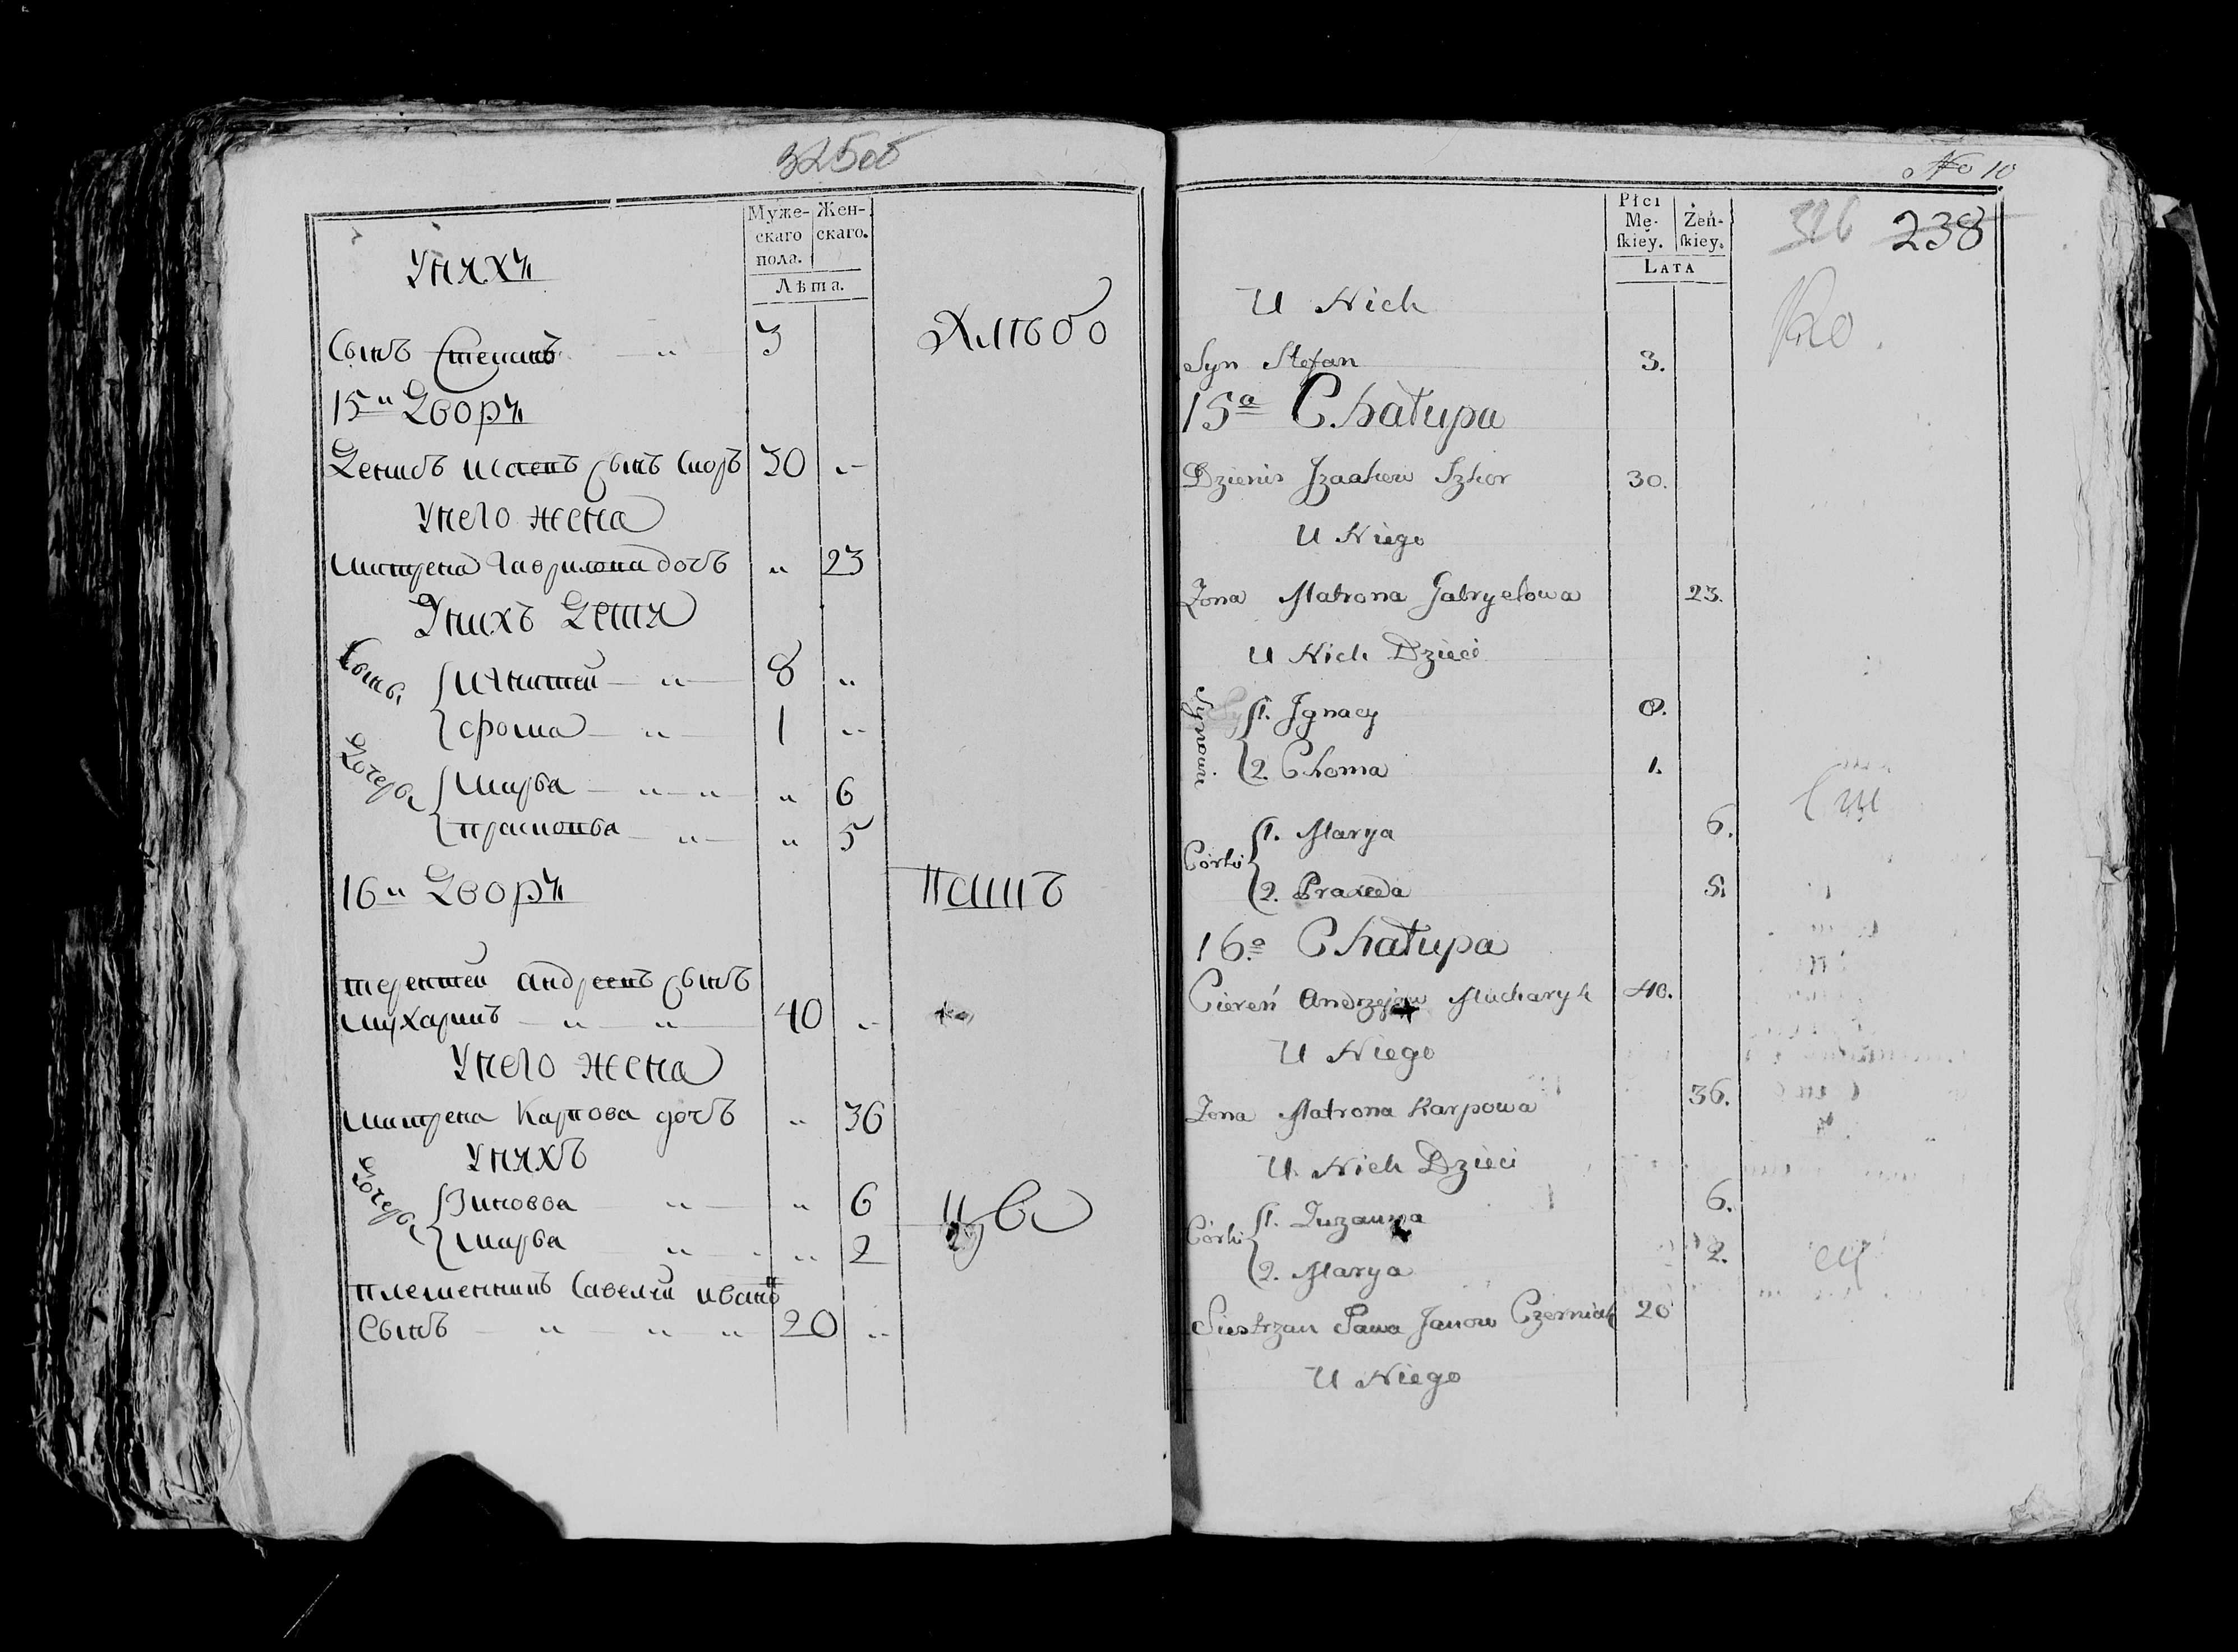 325об
Муже-
скаго
пола.
Жен-
скаго.
Лѣта.
У нихъ
Сынъ Степанъ 3
15й Дворъ
Денисъ исаевъ сынъ 30
У него жена
матрена Гаврилова дочь 23
У нихъ Дети
8
фома 1
Дочери
марва 6
прасковва 5
16й Дворъ
терентей андреевъ сынъ
мухаринъ 40
У него жена
матрена Карпова дочь 36
У нихъ
Дочери
Зиновва 6
марва 2
племенникъ Савелей иванъ
сынъ 20
No 10
Płci
Mę-
ſkiey.
Żeń-
ſkiey.
Lata
326 238
U Nich
Syn Stefan 3.
15a Chałupa
Dzienis Jzaakow Szkor 30.
U Niego
Żona Matrona Gabryelowa 23.
U Nich Dzieci
Synowie
1. Jgnacy 8.
2. Choma 1.
Córki
1. Marya 6.
2. Praxeda 5.
16a Chałupa
Ciereń Andrzejow Mucharyk 40.
U Niego
Żona Matrona Karpowa 36.
U Nich Dzieci
Córki
1. Zuzanna 6.
2. Marya 2.
Siestrzan Sawa Janow Czerniak 20
U Niego